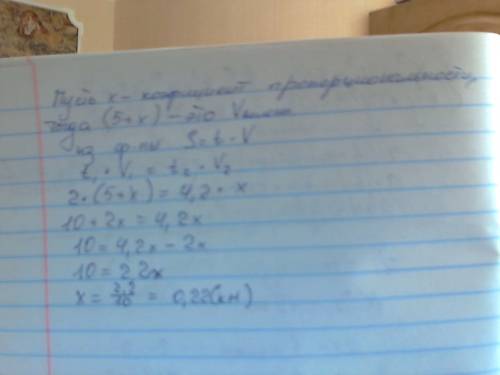 Пусть x - коэффициент пропорциональности,
тогда (5+x) - это V
из ф-лы S = t · V
t₁ · V₁ = t₂ · V₂
2 · (5+x) = 4,2 · x
10 + 2x = 4,2x
10 = 4,2x - 2x
10 = 2,2x
x = 2,2/10 = 0,22 (км)